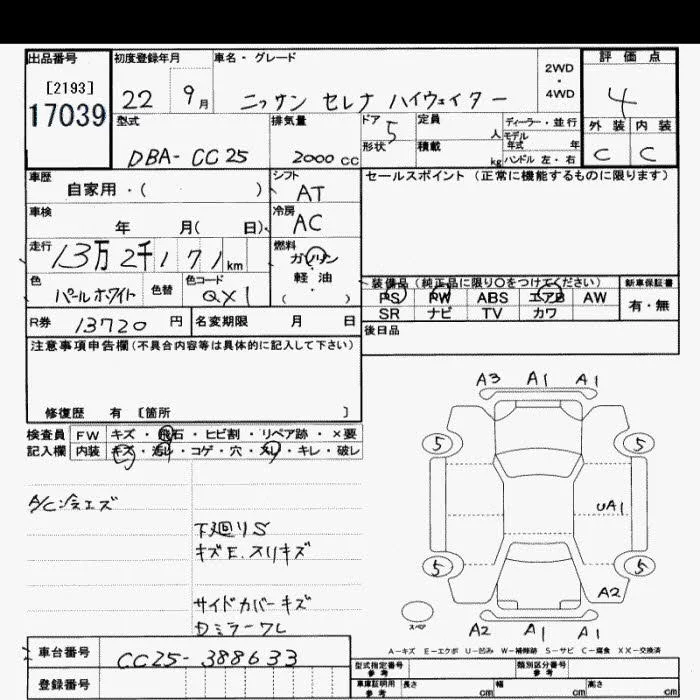 出品番号 初度登録年月 車名・グレード 2WD・4WD 評価点
[2193]
17039 22 9月 ニッサン セレナ ハイウェイター 4
型式 排気量 ドア 5 定員 人 ディーラー・並行 外装 内装
モデル年式 年
DBA-CC25 2000cc 形状 積載 kg ハンドル 左・右 C C
車歴 シフト セールスポイント (正常に機能するものに限ります)
自家用・( ) AT
車検 冷房
年 月( 日) AC
走行 13万2千171km 燃料
ガソリン
軽・油
( )
色 パールホワイト 色替 色コード QX1
装備品 (純正品に限り〇をつけてください) 新車保証書
PS PW ABS エアB AW 有・無
SR ナビ TV カワ
R券 13720円 名変期限 月 日 後日品
注意事項申告欄(不具合内容等は具体的に記入して下さい)
修復歴 有 〔箇所 〕
検査員 FW キズ・飛石・ヒビ割・リペア跡・×要
記入欄 内装 キズ・汚レ・コゲ・穴・スレ・キレ・破レ
A/C冷エズ
下廻りS
キズE.スリキズ
サイドカバーキズ
Dミラーワレ
A3 A1 A1
5 5
UA1
5 5
A2
スペア
A2 A1
A-キズ E-エクボ U-凹み W-補修跡 S-サビ C-腐食 XX-交換済
車台番号 CC25-388633
型式指定番号 参考 類別区分番号 参考
登録番号
車庫証明用 参考 長さ cm 幅 cm 高さ cm